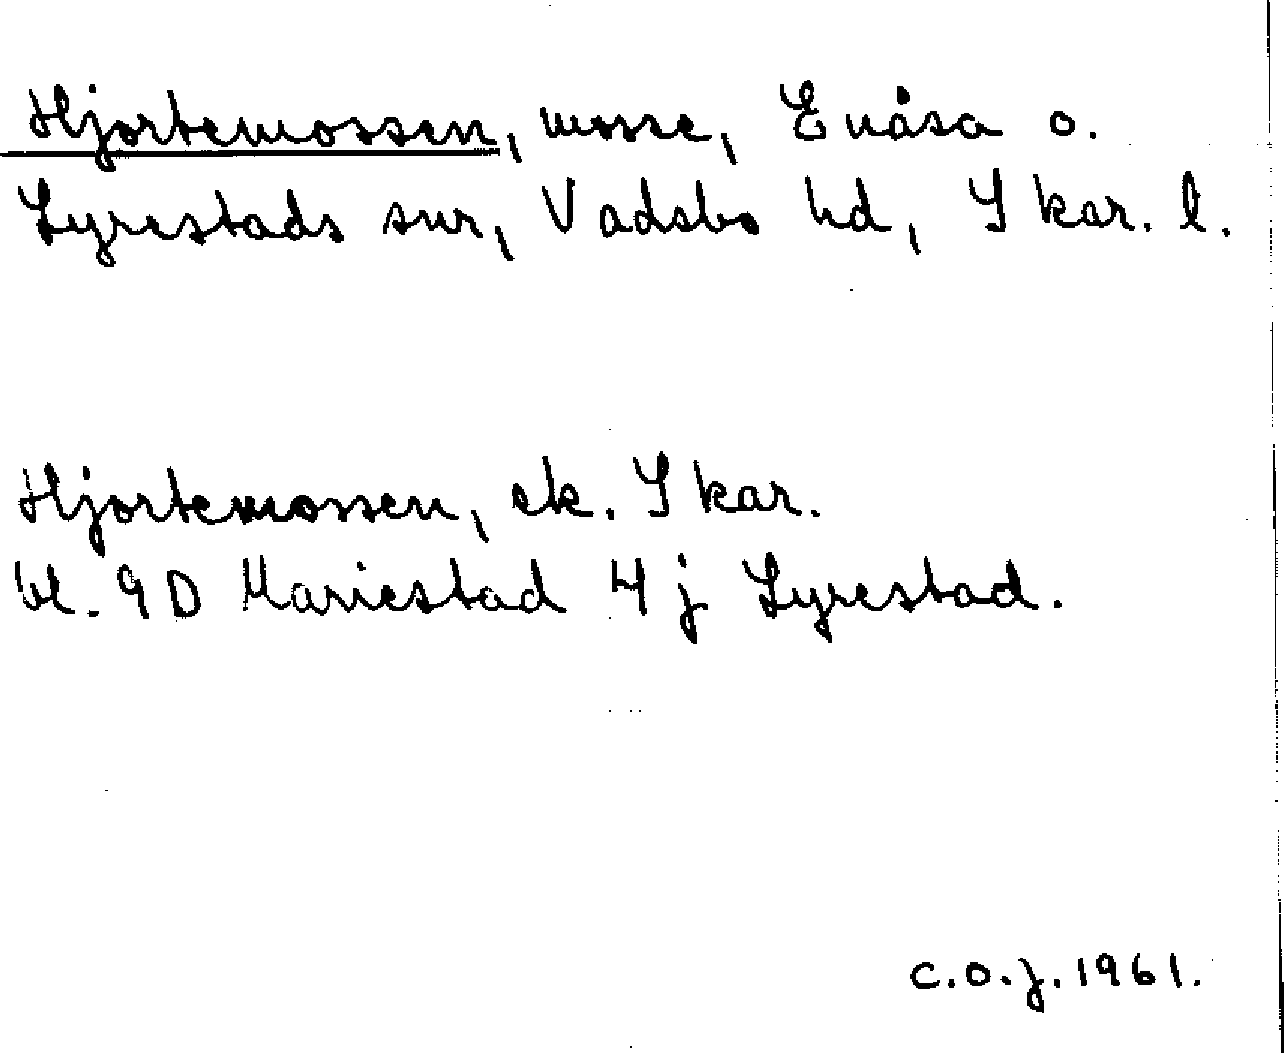 Hjortemossen, mosse, Enåsa o.
Lyrestads snr, Vadsbo hd, Skar. l.
Hjortemossen, ek. Skar.
bl. 9D Mariestad 4j Lyrestad.
C.O.J. 1961.